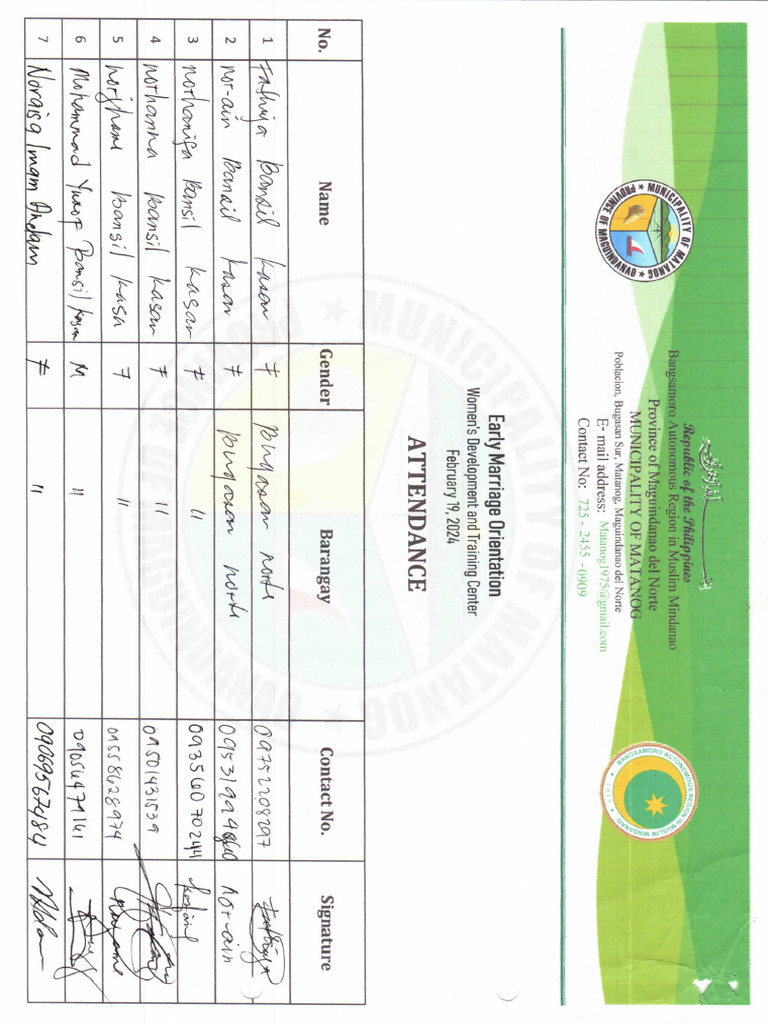 Republic of the Philippines
Bangsamoro Autonomous Region in Muslim Mindanao
Province of Maguindanao del Norte
MUNICIPALITY OF MATANOG
Poblacion, Bugasan Sur, Matanog, Maguindanao del Norte
E- mail address: Matanog1975@gmail.com
Contact No: 725 - 2455 - 0909
MUNICIPALITY OF MATANOG
PROVINCE OF MAGUINDANAO
BANGSAMORO AUTONOMOUS REGION IN MUSLIM MINDANAO
Early Marriage Orientation
Women's Development and Training Center
February 19, 2024
ATTENDANCE
No. Name Gender Barangay Contact No. Signature
1 Fathiya Bansil Kasan F Bugasan norte 09752208297 Fathiya
2 nor-ain Bansil Kasan F Bugasan norte nor-ain
3 norhanifa Bansil Kasan F " 09356070244
4 norhanna Bansil Kasan F " 09501431539
5 Bansil Kasa F " 09558628974
6 Mohammad Yusof Bansil Kasan M " 09056479161
7 Noraisa Imam Andam F " 09069567484